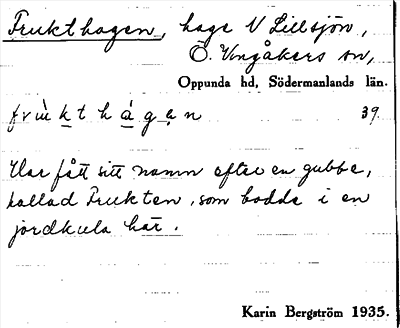 Frukthagen, hage V Lillsjön,
Ö. Vingåkers sn,
Oppunda hd, Södermanlands län.
frùkthágen 39.
Har fått sitt namn efter en gubbe,
kallad Frukten, som bodde i en
jordkula här.
Karin Bergström 1935.